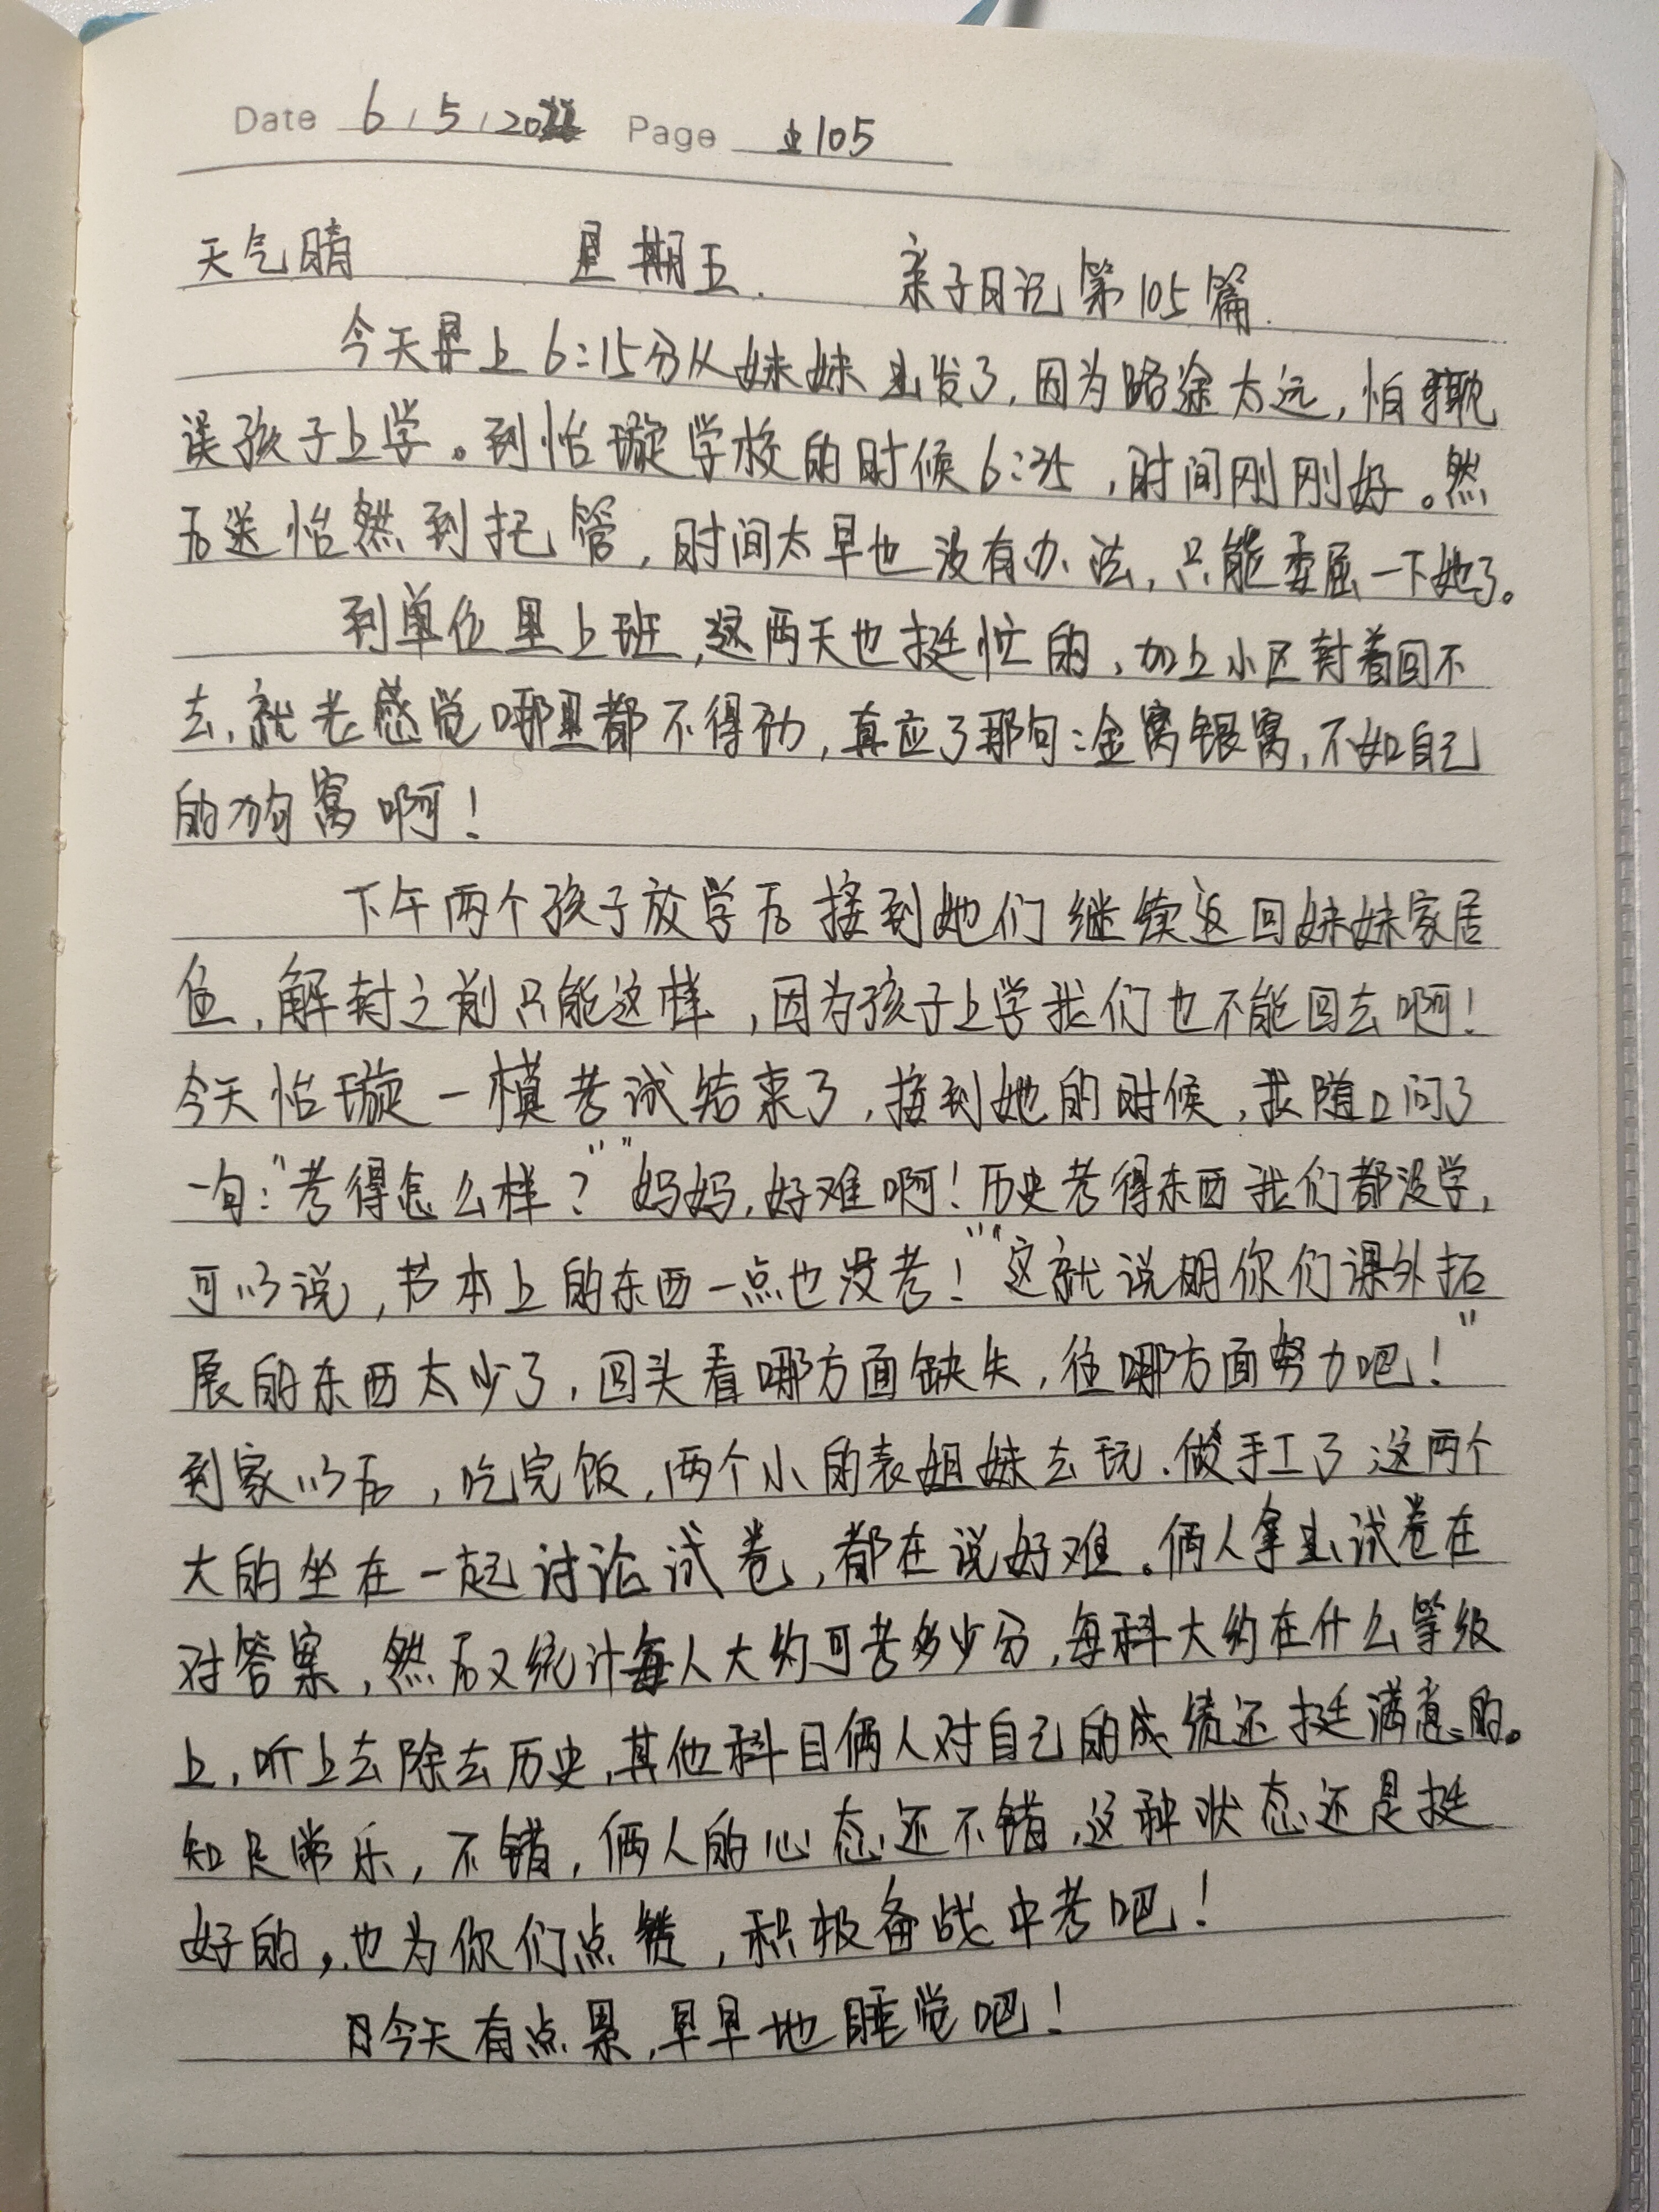 Date 6/5/2022 Page 105
天气晴 星期五. 亲子日记第105篇.
今天早上6:15分从妹妹出发了,因为路途太远,怕耽
误孩子上学。到怡璇学校的时候6:35,时间刚刚好。然
后送怡然到托管,时间太早也没有办法,只能委屈一下她了。
到单位里上班,这两天也挺忙的,加上小区封着回不
去,就老感觉哪里都不得劲,真应了那句:金窝银窝,不如自己
的狗窝啊!
下午两个孩子放学后接到她们继续返回妹妹家居
住,解封之前只能这样,因为孩子上学我们也不能回去啊!
今天怡璇一模考试结束了,接到她的时候,我随口问了
一句:“考得怎么样?”“妈妈,好难啊!历史考得东西我们都没学,
可以说,书本上的东西一点也没考!”“这就说明你们课外拓
展的东西太少了,回头看哪方面缺失,往哪方面努力吧!”
到家以后,吃完饭,两个小的表姐妹去玩、做手工了;这两个
大的坐在一起讨论试卷,都在说好难。俩人拿出试卷在
对答案,然后又统计每人大约可考多少分,每科大约在什么等级
上,听上去除去历史,其他科目俩人对自己的成绩还挺满意的。
知足常乐,不错,俩人的心态还不错,这种状态还是挺
好的,也为你们点赞,积极备战中考吧!
今天有点累,早早地睡觉吧!